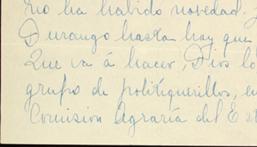 no ha habido novedad.
Durango hasta hoy que
Que va á hacer, Dios lo
grupo de politiquerillos, en
Comision Agraria del E